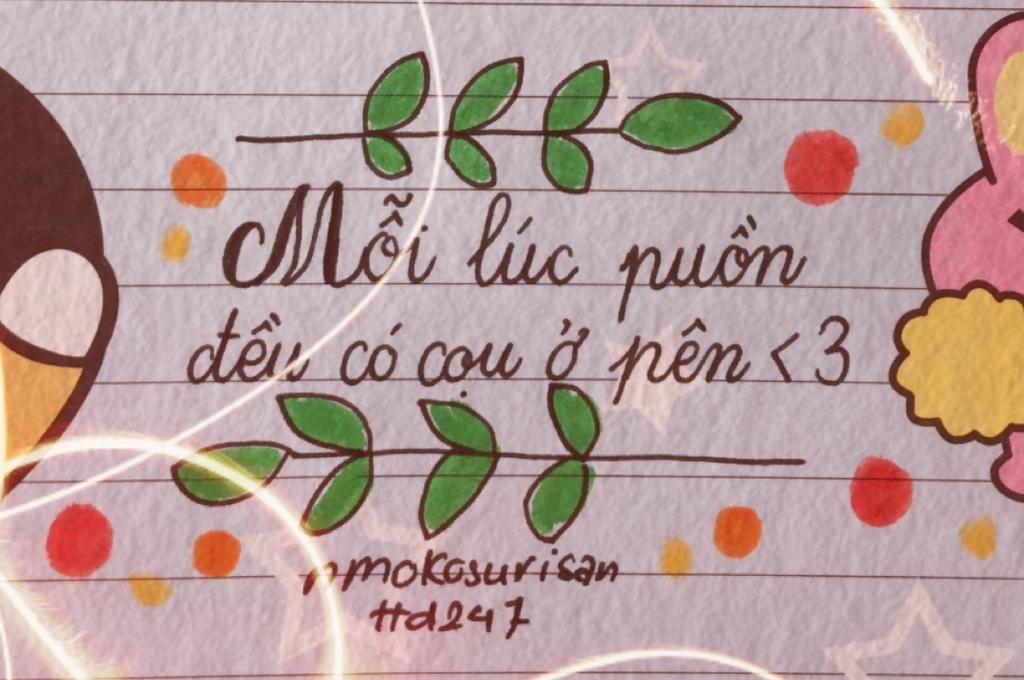 Mỗi lúc puồn
đều có cọu ở pên <3
nmokosurisan
ttd247